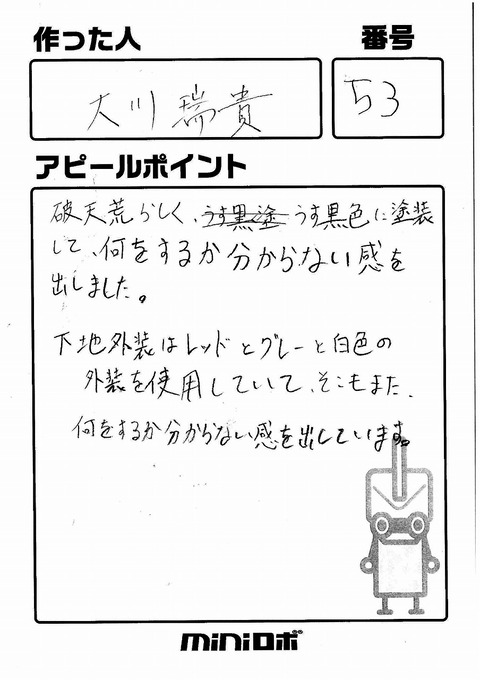 作った人
番号
大川 瑞貴
53
アピールポイント
破天荒らしく、うす黒塗 うす黒色に塗装
して、何をするか分からない感を
出しました。
下地外装はレッドとグレーと白色の
外装を使用していて、そこもまた、
何をするか分からない感を出しています。
miniロボ